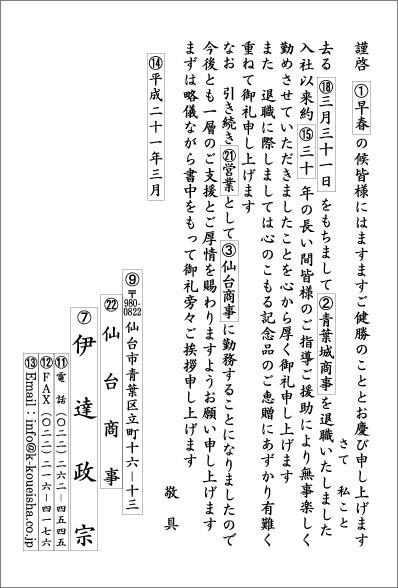 謹啓　①早春の候皆様にはますますご健勝のこととお慶び申し上げます
さて　私こと
去る⑱三月三十一日をもちまして②青葉城商事を退職いたしました
入社以来約⑮三十年の長い間皆様のご指導ご援助により無事楽しく
勤めさせていただきましたことを心から厚く御礼申し上げます
また　退職に際しましては心のこもる記念品のご恵贈にあずかり有難く
重ねて御礼申し上げます
なお　引き続き㉑営業として③仙台商事に勤務することになりましたので
今後とも一層のご支援とご厚情を賜わりますようお願い申し上げます
まずは略儀ながら書中をもって御礼旁々ご挨拶申し上げます
敬具
⑭平成二十一年三月
⑨〒980-0822　仙台市青葉区立町十六―十三
㉒仙台商事
⑦伊達政宗
⑪電話（〇二二）二六二―四五四五
⑫ＦＡＸ（〇二二）二一六―四一七六
⑬Email：info@k-koueisha.co.jp